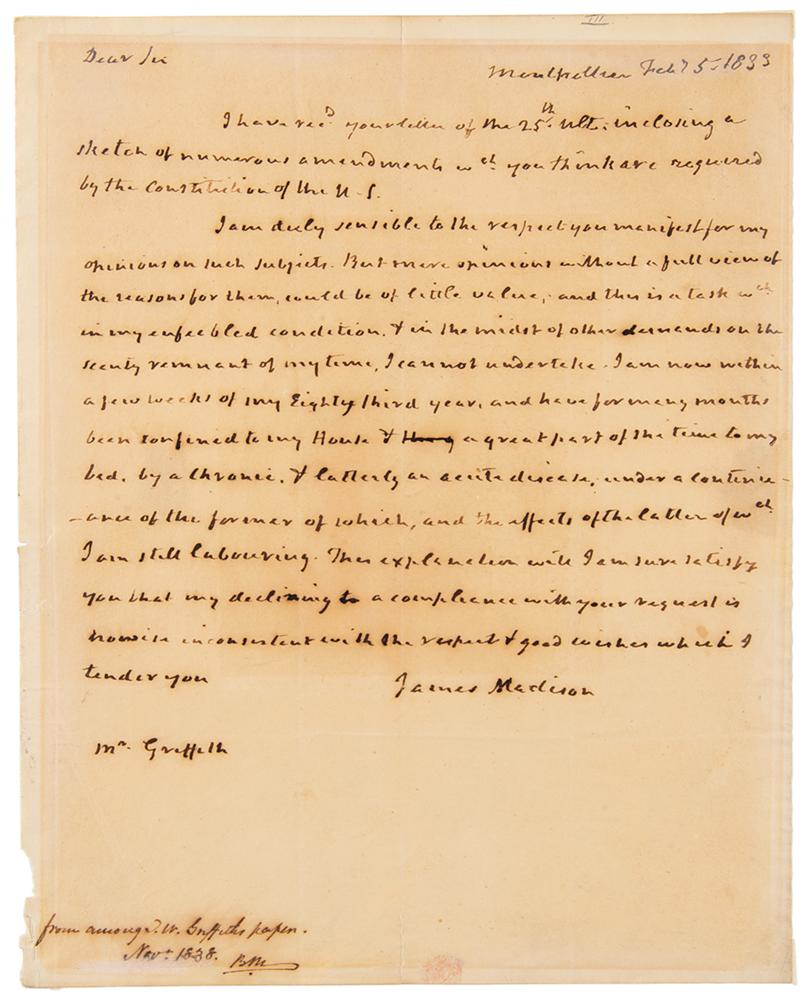 III
Dear Sir
Montpellier Feby 5. 1833
I have recd. your letter of the 25th. Ult: inclosing a
sketch of numerous amendments wch. you think are required
by the Constitution of the U.S.
I am duly sensible to the respect you manifest for my
opinions on such subjects. But mere opinions without a full view of
the reasons for them, could be of little value, and this is a task wch.
in my enfeebled condition, & in the midst of other demands on the
scanty remnant of my time, I cannot undertake. I am now within
a few weeks of my Eighty third year, and have for many months
been confined to my House & a great part of the time to my
bed, by a chronic, & latterly an acute disease, under a continu-
-ance of the former of which, and the effects of the latter of wch.
I am still labouring. This explanation will I am sure satisfy
you that my declining a compliance with your request is
nowise inconsistent with the respect & good wishes which I
tender you
James Madison
Mr. Griffith
from among W. Griffith's papers.
Novr. 1838.